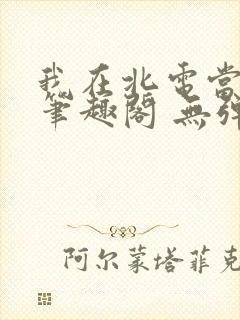 我在北電當
筆趣閣 無彈
阿尔蒙塔菲克